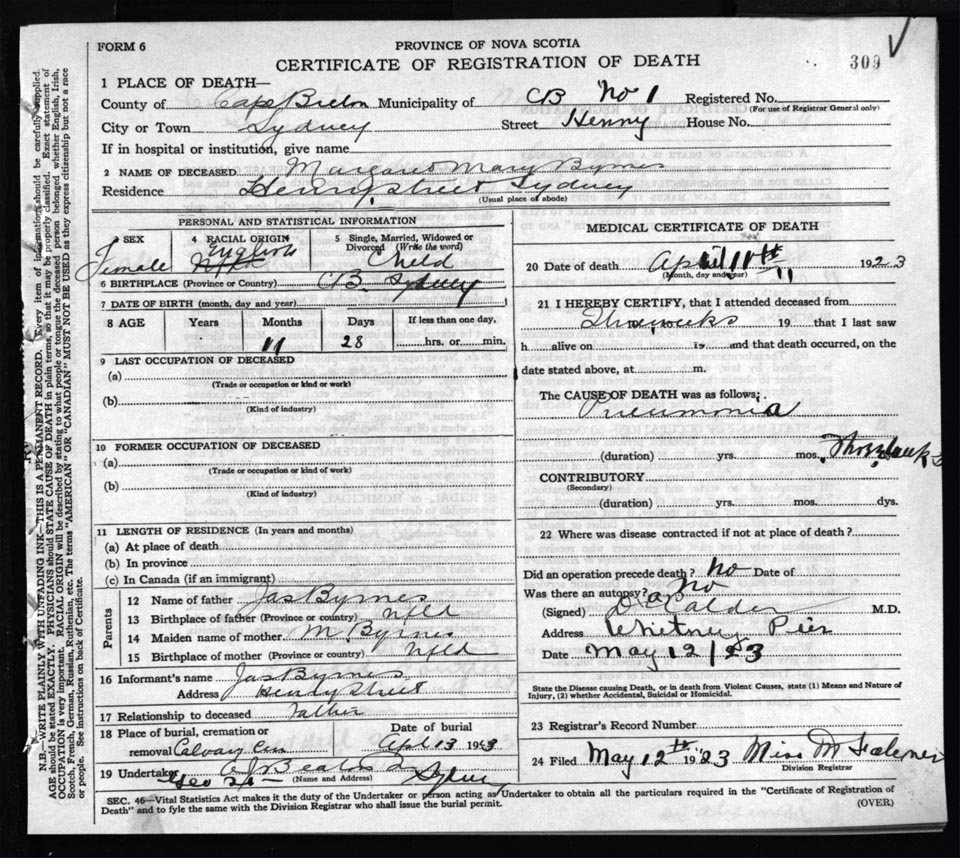 FORM 6
PROVINCE OF NOVA SCOTIA
CERTIFICATE OF REGISTRATION OF DEATH
309
1 PLACE OF DEATH—
County of Cape Breton Municipality of CB No 1 Registered No.
(For use of Registrar General only)
City or Town Sydney Street Henny House No.
If in hospital or institution, give name
2 NAME OF DECEASED Margaret Mary Byrnes
Residence Henry Street Sydney
(Usual place of abode)
PERSONAL AND STATISTICAL INFORMATION
SEX Female
4 RACIAL ORIGIN English Nfld
5 Single, Married, Widowed or Divorced (Write the word) Child
6 BIRTHPLACE (Province or Country) CB. Sydney
7 DATE OF BIRTH (month, day and year)
8 AGE Years Months Days If less than one day,
11 28 hrs. or min.
9 LAST OCCUPATION OF DECEASED
(a)
(Trade or occupation or kind or work)
(b)
(Kind of industry)
10 FORMER OCCUPATION OF DECEASED
(a)
(Trade or occupation or kind or work)
(b)
(Kind of industry)
11 LENGTH OF RESIDENCE (In years and months)
(a) At place of death
(b) In province
(c) In Canada (if an immigrant)
Parents
12 Name of father Jas Byrnes
13 Birthplace of father (Province or country) Nfld
14 Maiden name of mother M. Byrnes
15 Birthplace of mother (Province or country) Nfld
16 Informant's name Jas Byrnes
Address Henry Street
17 Relationship to deceased Father
18 Place of burial, cremation or Date of burial
removal Calvary Cem Apl 13 1923
19 Undertaker
(Name and Address) Sydney
MEDICAL CERTIFICATE OF DEATH
20 Date of death April 11th 1923
(Month, day and year)
21 I HEREBY CERTIFY, that I attended deceased from
Three weeks 19 that I last saw
h alive on 19 and that death occurred, on the
date stated above, at m.
The CAUSE OF DEATH was as follows:
Pneumonia
(duration) yrs. mos. Three weeks
CONTRIBUTORY
(Secondary)
(duration) yrs. mos. dys.
22 Where was disease contracted if not at place of death?
Did an operation precede death? No Date of
Was there an autopsy? No
(Signed) Calder M.D.
Address Whitney Pier
Date May 12/23
State the Disease causing Death, or in death from Violent Causes, state (1) Means and Nature of
Injury, (2) whether Accidental, Suicidal or Homicidal.
23 Registrar's Record Number
24 Filed May 12th 1923 Miss M Falconer
Division Registrar
SEC. 46—Vital Statistics Act makes it the duty of the Undertaker or person acting as Undertaker to obtain all the particulars required in the "Certificate of Registration of
Death" and to fyle the same with the Division Registrar who shall issue the burial permit.
(OVER)
N.B.—WRITE PLAINLY WITH UNFADING INK—THIS IS A PERMANENT RECORD. Every item of information should be carefully supplied.
AGE should be stated EXACTLY. PHYSICIANS should STATE CAUSE OF DEATH in plain terms, so that it may be properly classified. Exact statement of
OCCUPATION is very important. RACIAL ORIGIN will be described by stating to what people or tongue the deceased person belonged whether English, Irish,
Scotch, French, German, Russian, Ruthenian, etc. The terms "AMERICAN" OR "CANADIAN" MUST NOT BE USED as they express citizenship but not a race
or people. See instructions on back of Certificate.